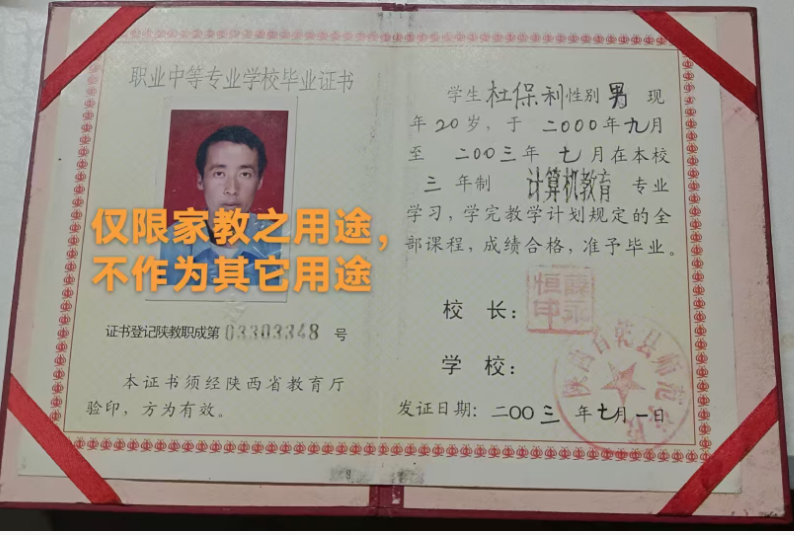 职业中等专业学校毕业证书
仅限家教之用途，
不作为其它用途
证书登记陕教职成第03303348号
本证书须经陕西省教育厅
验印，方为有效。
学生杜保利性别男 现
年20岁，于 二000年九月
至 二00三年 七月在本校
三 年制 计算机教育 专业
学习，学完教学计划规定的全
部课程，成绩合格，准予毕业。
校 长：
学 校：
发证日期：二00三 年七月一日